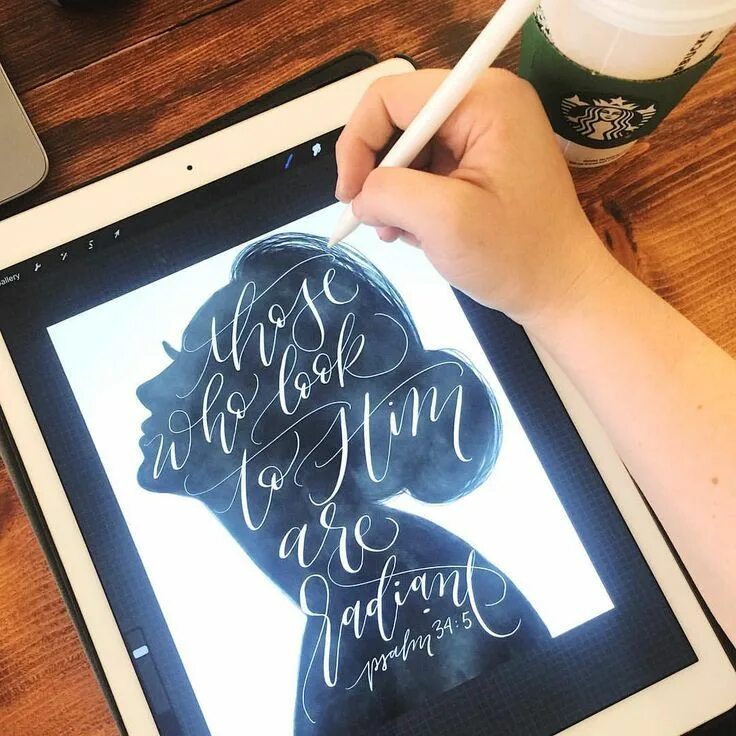 allery
those
who look
to Him
are
radiant
- psalm 34:5